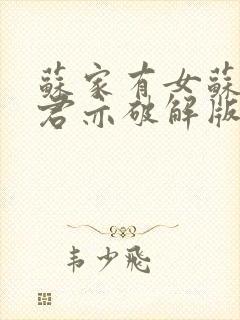 蘇家有女蘇
君亦破解版
韦少飛